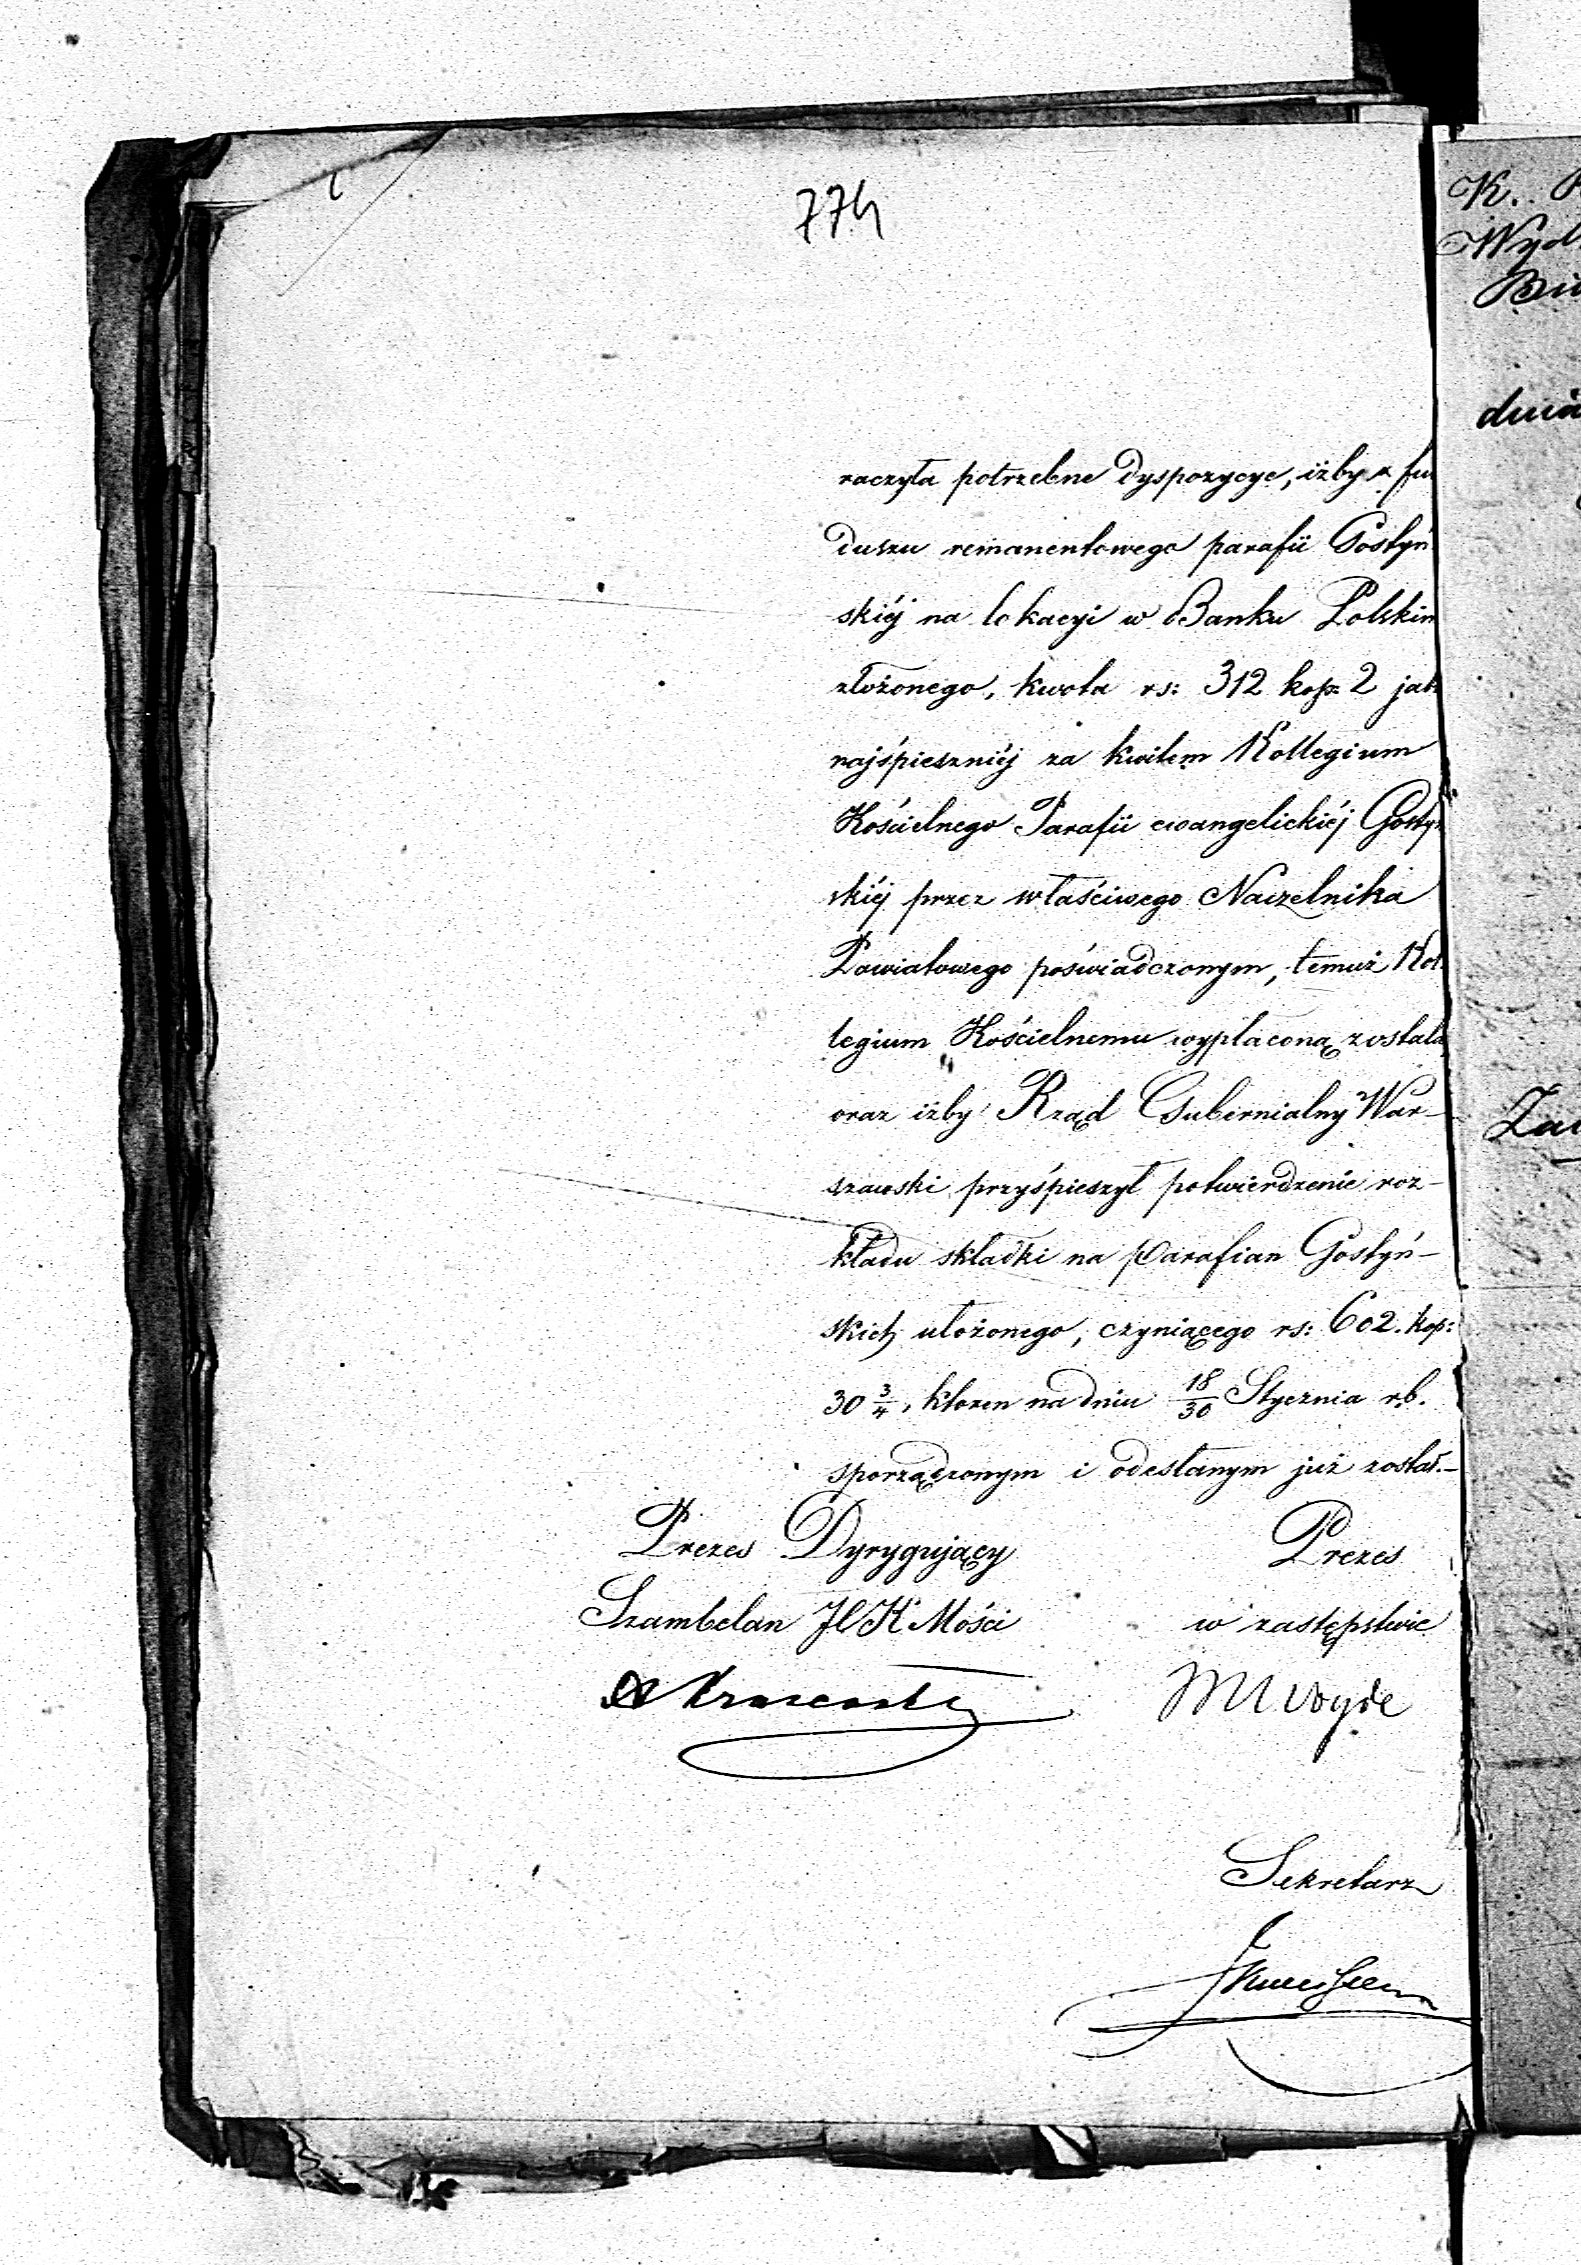 774
raczyła potrzebne dyspozycye, iżby z fun
duszu remanentowego parafii Gostyń
skiéj na lokacyi w Banku Polskim
złożonego, kwota rs: 312 kop: 2 jak
najśpieszniéj za kwitem Kollegium
Kościelnego Parafii ewangelickiéj Gostyń
skiéj przez właściwego Naczelnika
Powiatowego poświadczonym, temuż Kol
legium Kościelnemu wypłaconą została
oraz iżby Rząd Gubernialny War-
szawski przyśpieszył potwierdzenie roz-
kładu składki na Parafian Gostyń-
skich ułożonego, czyniącego rs: 602. kop:
30 3/4, ktoren na dniu 18/30 Stycznia r.b.
sporządzonym i odesłanym już został.-
Prezes Dyrygujący
Prezes
Szambelan JCK Mości
w zastępstwie
M Woyde
Sekretarz
K..
Wyd
Biu
dnia
Za